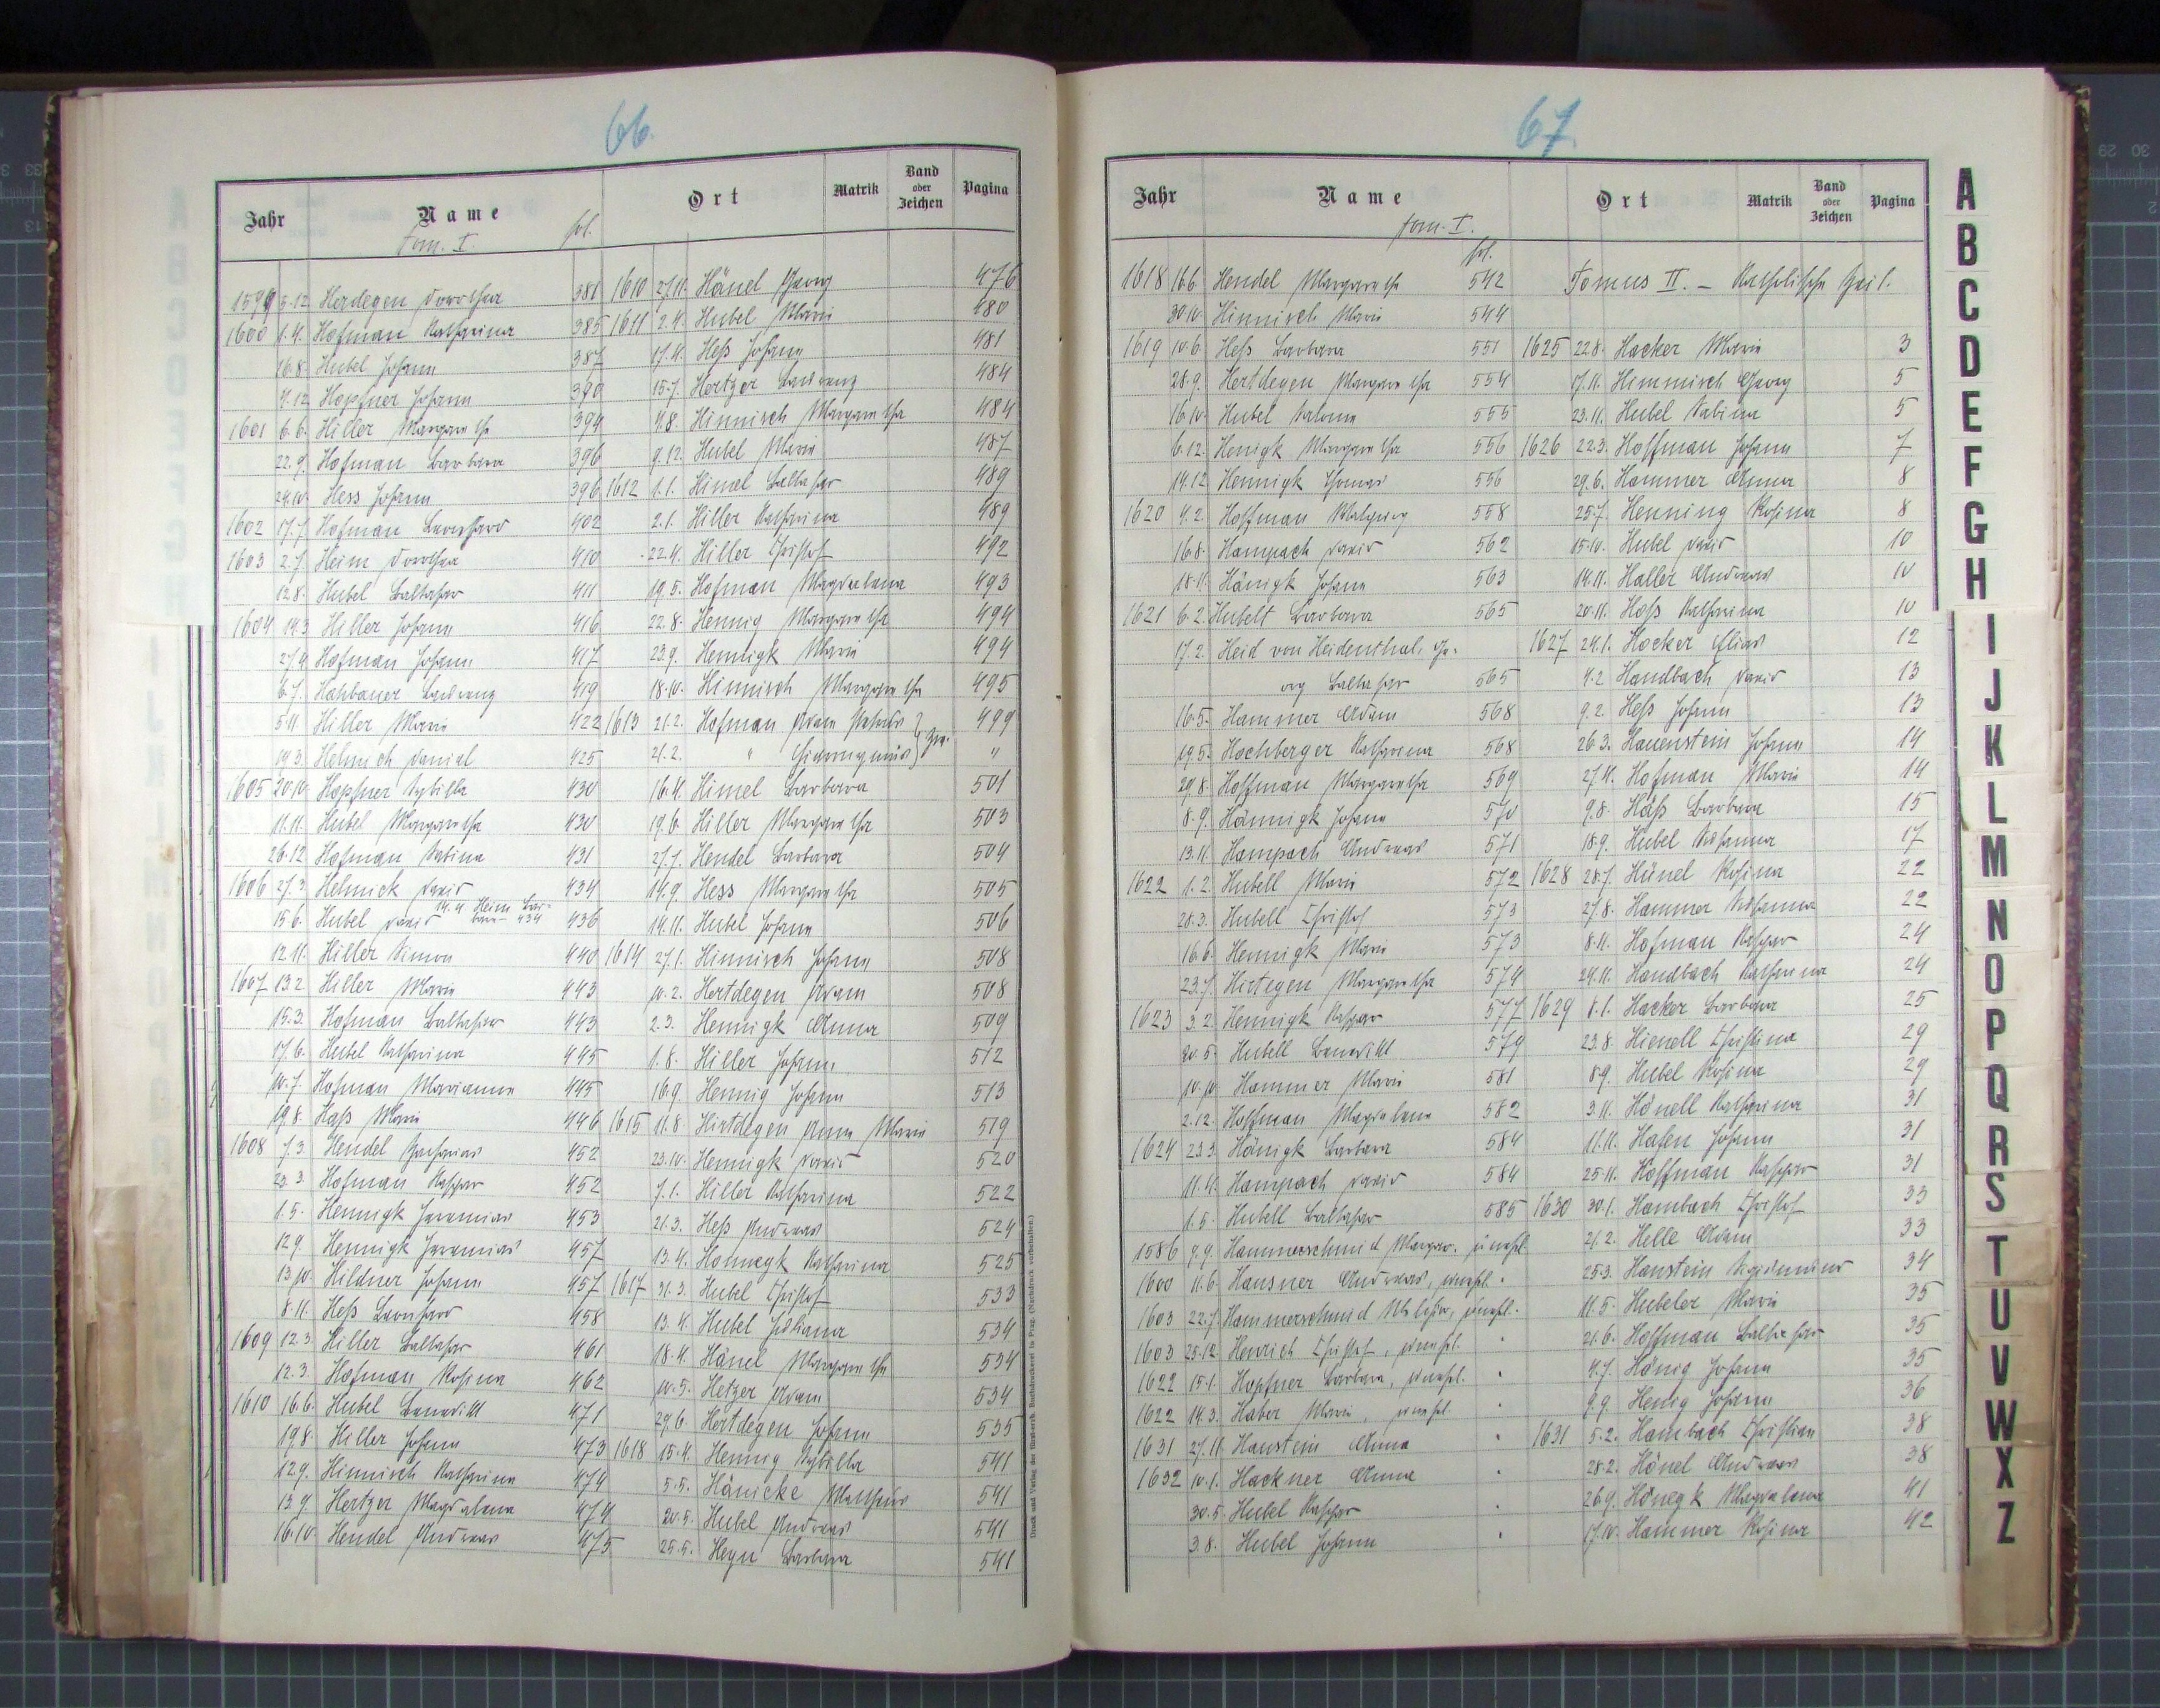 66
Jahr Name Ort Matrik Band oder Zeichen Pagina
tom. I. fol.
1599 5.12. Herdegen Dorothea 381
1600 1.4. Hofman Katharina 385
16.8. Hubel Johann 387
4.12. Hopfner Johann 390
1601 6.6. Hiller Margaretha 394
22.9. Hofman Barbara 396
24.10. Hess Johann 396
1602 17.7. Hofman Leonhard 402
1603 2.7. Heim Dorothea 410
12.8. Hubel Balthasar 411
1604 14.3. Hiller Johann 416
27.4. Hofman Johann 417
6.7. Hahbauer Laurenz 419
5.11. Hiller Maria 422
19.3. Helmich Daniel 425
1605 20.10. Hopfner Sybilla 430
11.11. Hubel Margaretha 430
26.12. Hofman Sabina 431
1606 27.3. Helmick David 434
14.4. Heim Barbara - 434
15.6. Hubel David 436
12.11. Hiller Simon 440
1607 13.2. Hiller Maria 443
15.3. Hofman Balthasar 443
17.6. Hubel Katharina 445
10.7. Hofman Marianne 445
19.8. Haß Maria 446
1608 7.3. Hendel Zacharias 452
23.3. Hofman Kaspar 452
1.5. Hennigk Jeremias 453
12.9. Hennigk Jeremias 457
13.10. Hildner Johann 457
8.11. Heß Leonhard 458
1609 12.3. Hiller Balthasar 461
12.3. Hofman Rosina 462
1610 16.6. Hubel Benedikt 471
19.8. Hiller Johann 473
12.9. Hinnisch Katharina 474
13.9. Hertzer Magdalena 474
16.10. Hendel Andreas 475
1610 27.11. Hänel Georg 476
1611 2.4. Hubel Maria 480
17.4. Heß Johann 481
15.7. Hertzer Laurenz 484
4.8. Hinnisch Margaretha 484
9.12. Hubel Maria 487
1612 1.1. Himel Balthasar 489
2.1. Hiller Katharina 489
22.4. Hiller Christof 492
19.5. Hofman Magdalena 493
22.8. Hennig Margaretha 494
23.9. Hennigk Maria 494
18.10. Hinnisch Margaretha 495
1613 21.2. Hofman Adam 499
21.2. " Hieronymus "
16.4. Himel Barbara 501
19.6. Hiller Margaretha 503
27.7. Hendel Barbara 504
14.9. Hess Margaretha 505
14.11. Hubel Johann 506
1614 27.1. Hinnisch Johann 508
10.2. Hertdegen Adam 508
2.3. Hennigk Anna 509
1.8. Hiller Johann 512
16.9. Hennig Johann 513
1615 11.8. Hirtdegen Anna Maria 519
23.10. Hennigk David 520
7.1. Hiller Katharina 522
21.3. Heß Andreas 524
13.4. Hannegk Katharina 525
1617 31.3. Hubel Christof 533
13.4. Hubel Juliana 534
18.4. Hänel Margaretha 534
10.5. Hetzer Adam 534
29.6. Hertdegen Johann 535
1618 15.4. Hennig Sybilla 541
5.5. Hänicke Matthäus 541
20.5. Hubel Andreas 541
25.5. Heyn Barbara 541
67
Jahr Name Ort Matrik Band oder Zeichen Pagina
tom. I.
fol.
1618 16.6. Hendel Margaretha 542
30.10. Hinnisch Maria 544
1619 10.6. Heß Barbara 551
28.9. Hertdegen Margaretha 554
16.10. Hubel Salome 555
6.12. Henigk Margaretha 556
14.12. Hennigk Thomas 556
1620 4.2. Hoffman 558
16.8. Hampach David 562
18.11. Hänigk Johann 563
1621 6.2. Hubelt Barbara 565
17.2. Heid von Heidenthal, Ge-
org Balthasar 565
16.5. Hammer Adam 568
19.5. Hochberger Katharina 568
29.8. Hoffman Margaretha 569
8.9. Hännigk Johann 570
13.11. Hampach Andreas 571
1622 1.2. Hubell Maria 572
28.3. Hubell Christof 573
16.6. Hennigk Maria 573
23.7. Hirtegen Margaretha 574
1623 3.2. Hennigk Kaspar 577
20.5. Hubell Benedikt 579
10.10. Hammer Maria 581
2.12. Hoffman Magdalena 582
1624 23.3. Hänigk Barbara 584
11.4. Hampach David 584
1.5. Hubell Balthasar 585
1586 9.9. Hammerschmid Margar. unehl.
1600 11.6. Hausner Andreas, unehl.
1603 22.7. Hammerschmid unehl.
1603 25.12. Henrich Christof, unehl.
1622 15.1. Hopfner Barbara, unehl.
1622 14.3. Haber Maria, unehl.
1631 27.11. Haustein Anna
1632 10.1. Hackner Anna
30.5. Hubel Kaspar
3.8. Hubel Johann
Tomus II. - Katholische Zeit.
1625 22.8. Hacker Maria 3
17.11. Himmisch Georg 5
23.11. Hubel Sabina 5
1626 22.3. Hoffman Johann 7
29.6. Hammer Anna 8
25.7. Henning Rosina 8
15.10. Hubel David 10
14.11. Haller Andreas 10
20.11. Haß Katharina 10
1627 24.1. Hacker Elias 12
4.2. Handbach David 13
9.2. Heß Johann 13
26.3. Hauenstein Johann 14
27.4. Hofman Maria 14
9.8. Häß Barbara 15
18.9. Hubel Susanna 17
1628 28.7. Hünel Rosina 22
27.8. Hammer Susanna 22
8.11. Hofman Kaspar 24
24.11. Handbach Katharina 24
1629 8.1. Hacker Barbara 25
23.8. Hienell Christina 29
8.9. Hubel Rosina 29
3.11. Hönell Katharina 31
11.11. Hafen Johann 31
25.11. Hoffman Kaspar 31
1630 30.1. Hambach Christof 33
21.2. Helle Adam 33
25.3. Hanstein 34
11.5. Hubeler Maria 35
21.6. Hoffman Balthasar 35
4.7. Hönig Johann 35
9.9. Henig Johann 36
1631 5.2. Hambach Christian 38
28.2. Hönel Andreas 38
26.9. Hönegk Magdalena 41
17.10. Hammer Rosina 42
A
B
C
D
E
F
G
H
I
J
K
L
M
N
O
P
Q
R
S
T
U
V
W
X
Z